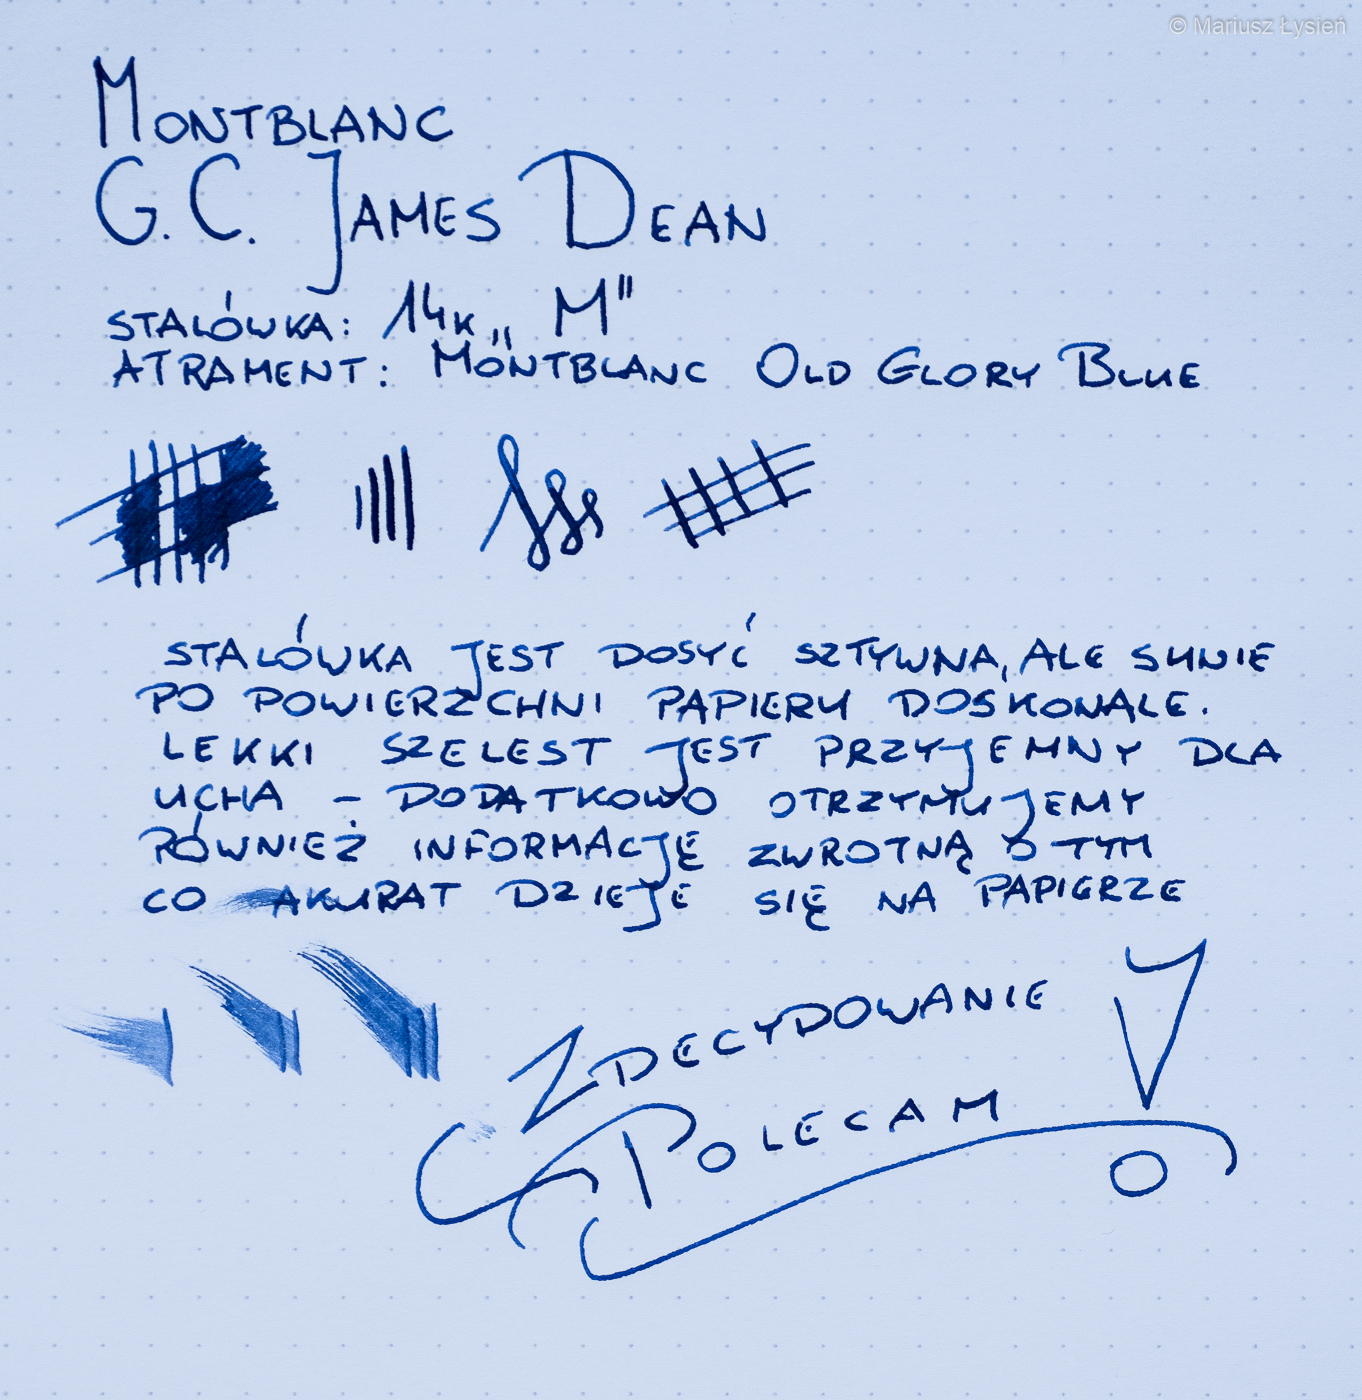 © Mariusz Łysień
MONTBLANC
G.C. JAMES DEAN
STALÓWKA: 14K „M"
ATRAMENT: MONTBLANC OLD GLORY BLUE
STALÓWKA JEST DOSYĆ SZTYWNA, ALE SUNIE
PO POWIERZCHNI PAPIERU DOSKONALE.
LEKKI SZELEST JEST PRZYJEMNY DLA
UCHA – DODATKOWO OTRZYMUJEMY
RÓWNIEŻ INFORMACJĘ ZWROTNĄ O TYM
CO AKURAT DZIEJE SIĘ NA PAPIERZE
ZDECYDOWANIE
POLECAM!